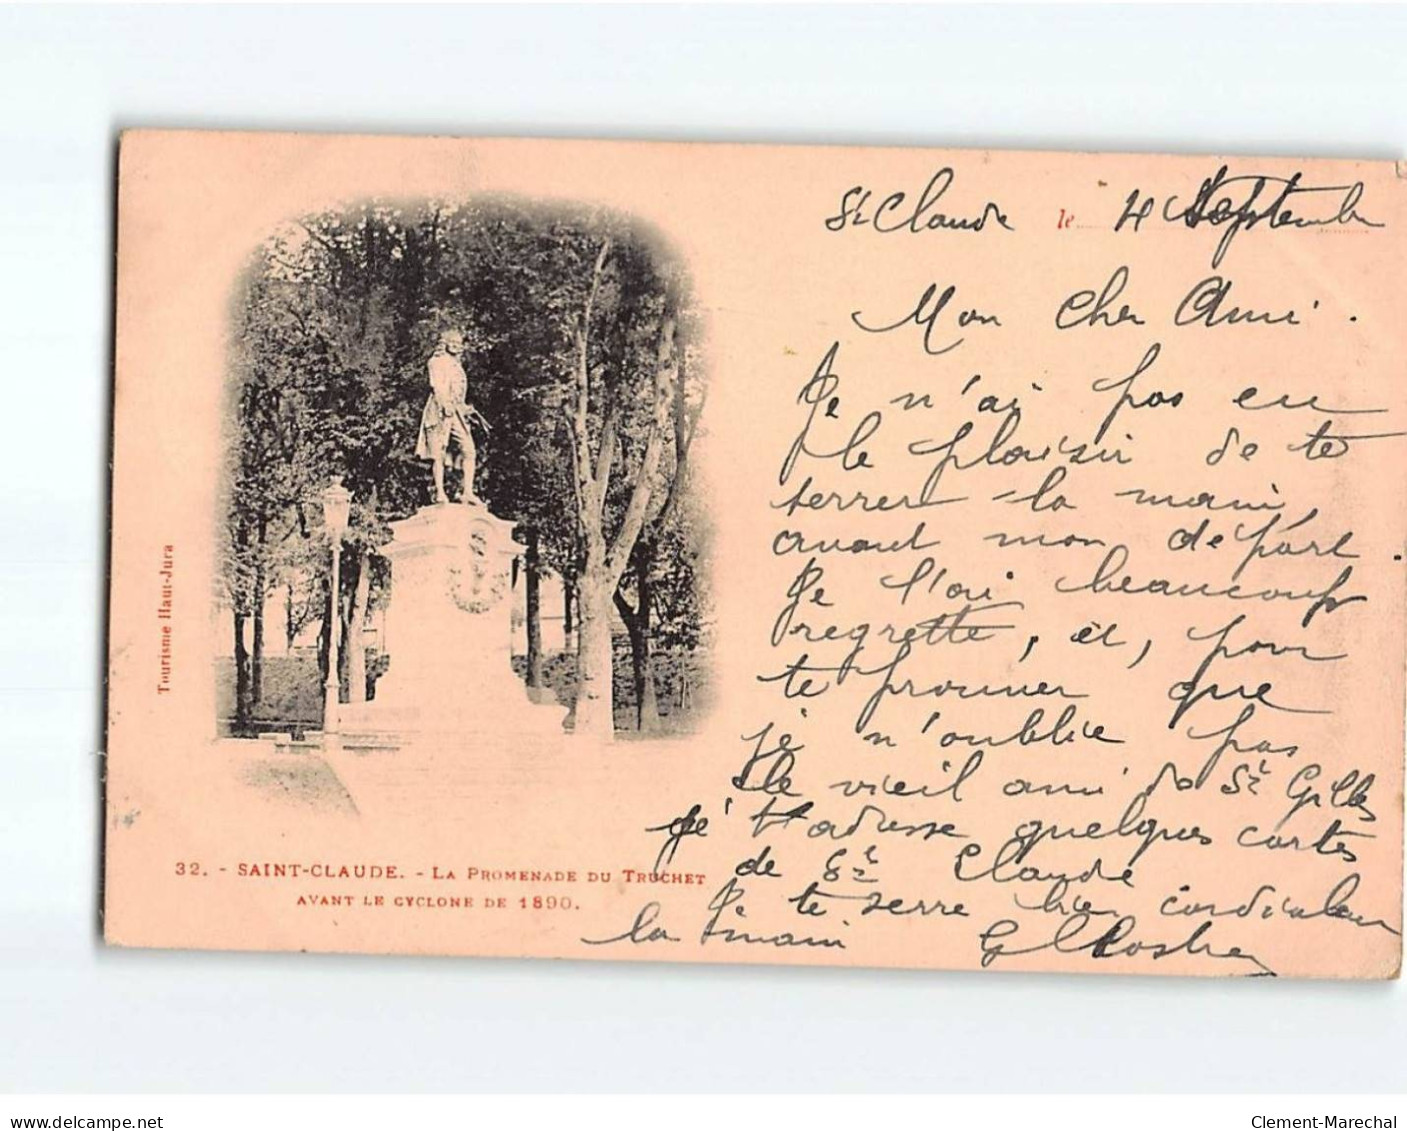 St Claude le 4 Septembre
Mon cher Ami.
Je n'ai pas eu
le plaisir de te
serrer la main,
avant mon départ.
Je l'ai beaucoup
regretté, et, pour
te prouver que
je n'oublie pas
le vieil ami de St Gilles
je t'adresse quelques cartes
de St Claude
Je te serre bien cordialement
la main
Tourisme Haut-Jura
32. - SAINT-CLAUDE. - LA PROMENADE DU TRUCHET
AVANT LE CYCLONE DE 1890.
Clement-Marechal